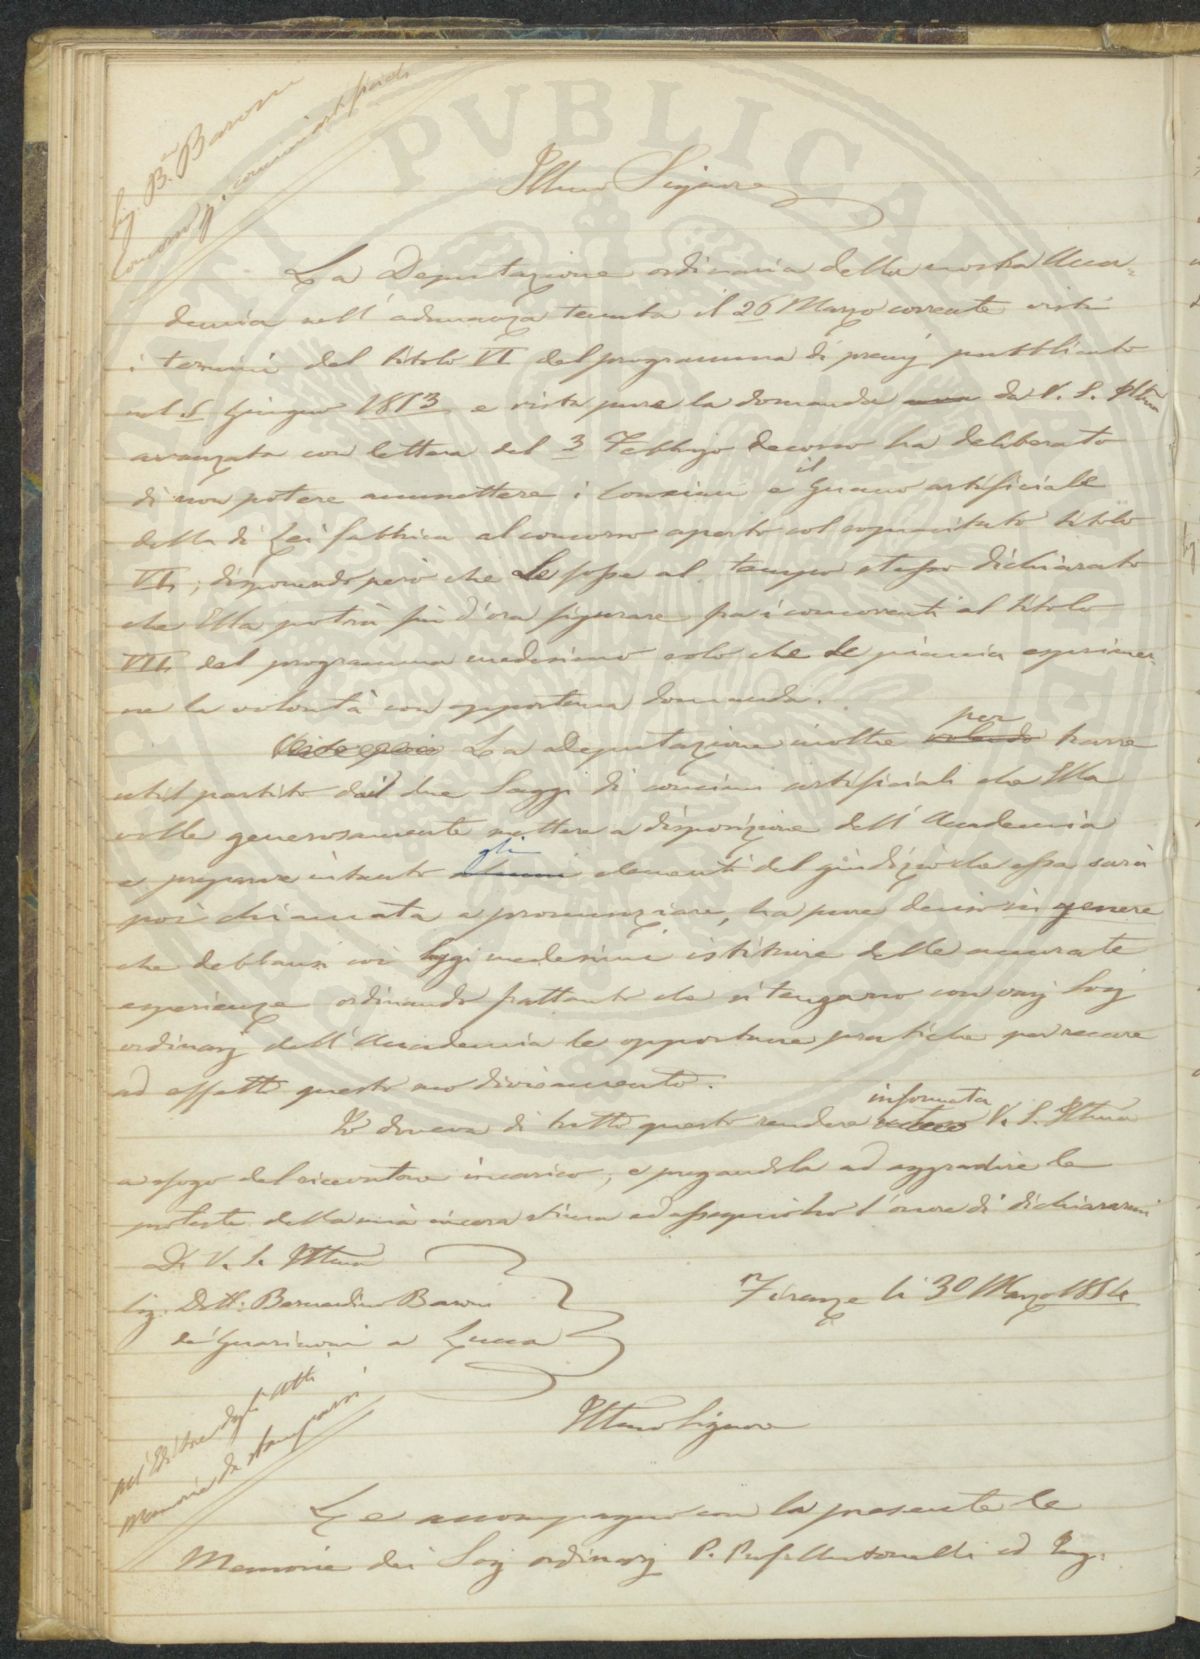 Sig. B.no Baroni
Concorso p. concimi artificiali
Illmo Signore
La Deputazione ordinaria della nostra Acca-
demia nell'adunanza tenuta il 26 Marzo corrente visti
i termini del titolo VI del programma di premj pubblicato
nel 5 Giugno 1853 e vista pure la domanda da V. S. Illma
avanzata con lettera del 3 Febbrajo decorso ha deliberato
di non potere ammettere i concimi e il Guano artificiale
della di Lei fabbrica al concorso aperto col sopracitato titolo
VI, disponendo però che Le fosse al tempo stesso dichiarato
che Ella potrà fin d'ora figurare fra i concorrenti al titolo
VII del programma medesimo solo che Le piaccia esprimer-
ne la volontà con opportuna domanda.
La Deputazione inoltre per trarre
util partito dai due Saggi di concimi artificiali che Ella
volle generosamente mettere a disposizione dell'Accademia
e preparare intanto gli elementi del giudizio che essa sarà
poi chiamata a pronunziare, ha pure deciso in genere
che debbansi coi saggi medesimi istituire delle accurate
esperienze ordinando frattanto che si tengano con varj Socj
ordinarj dell'Accademia le opportune pratiche per recare
ad effetto questo suo divisamento.
Io doveva di tutto questo rendere informata V. S. Illma
a sfogo del ricevutone incarico, e pregandola ad aggradire le
proteste della mia sincera stima ed ossequio ho l'onore di dichiararmi
Di V. S. Illma
Sig. Dott. Bernardino Baroni
Lucca
Firenze li 30 Marzo 1854
All'Editore degli Atti
Memorie da stamparsi
Illmo Signore
Le accompagno con la presente le
Memorie dei Socj ordinarj P. Prof. Antonelli ed Ing.
PVBLICAE